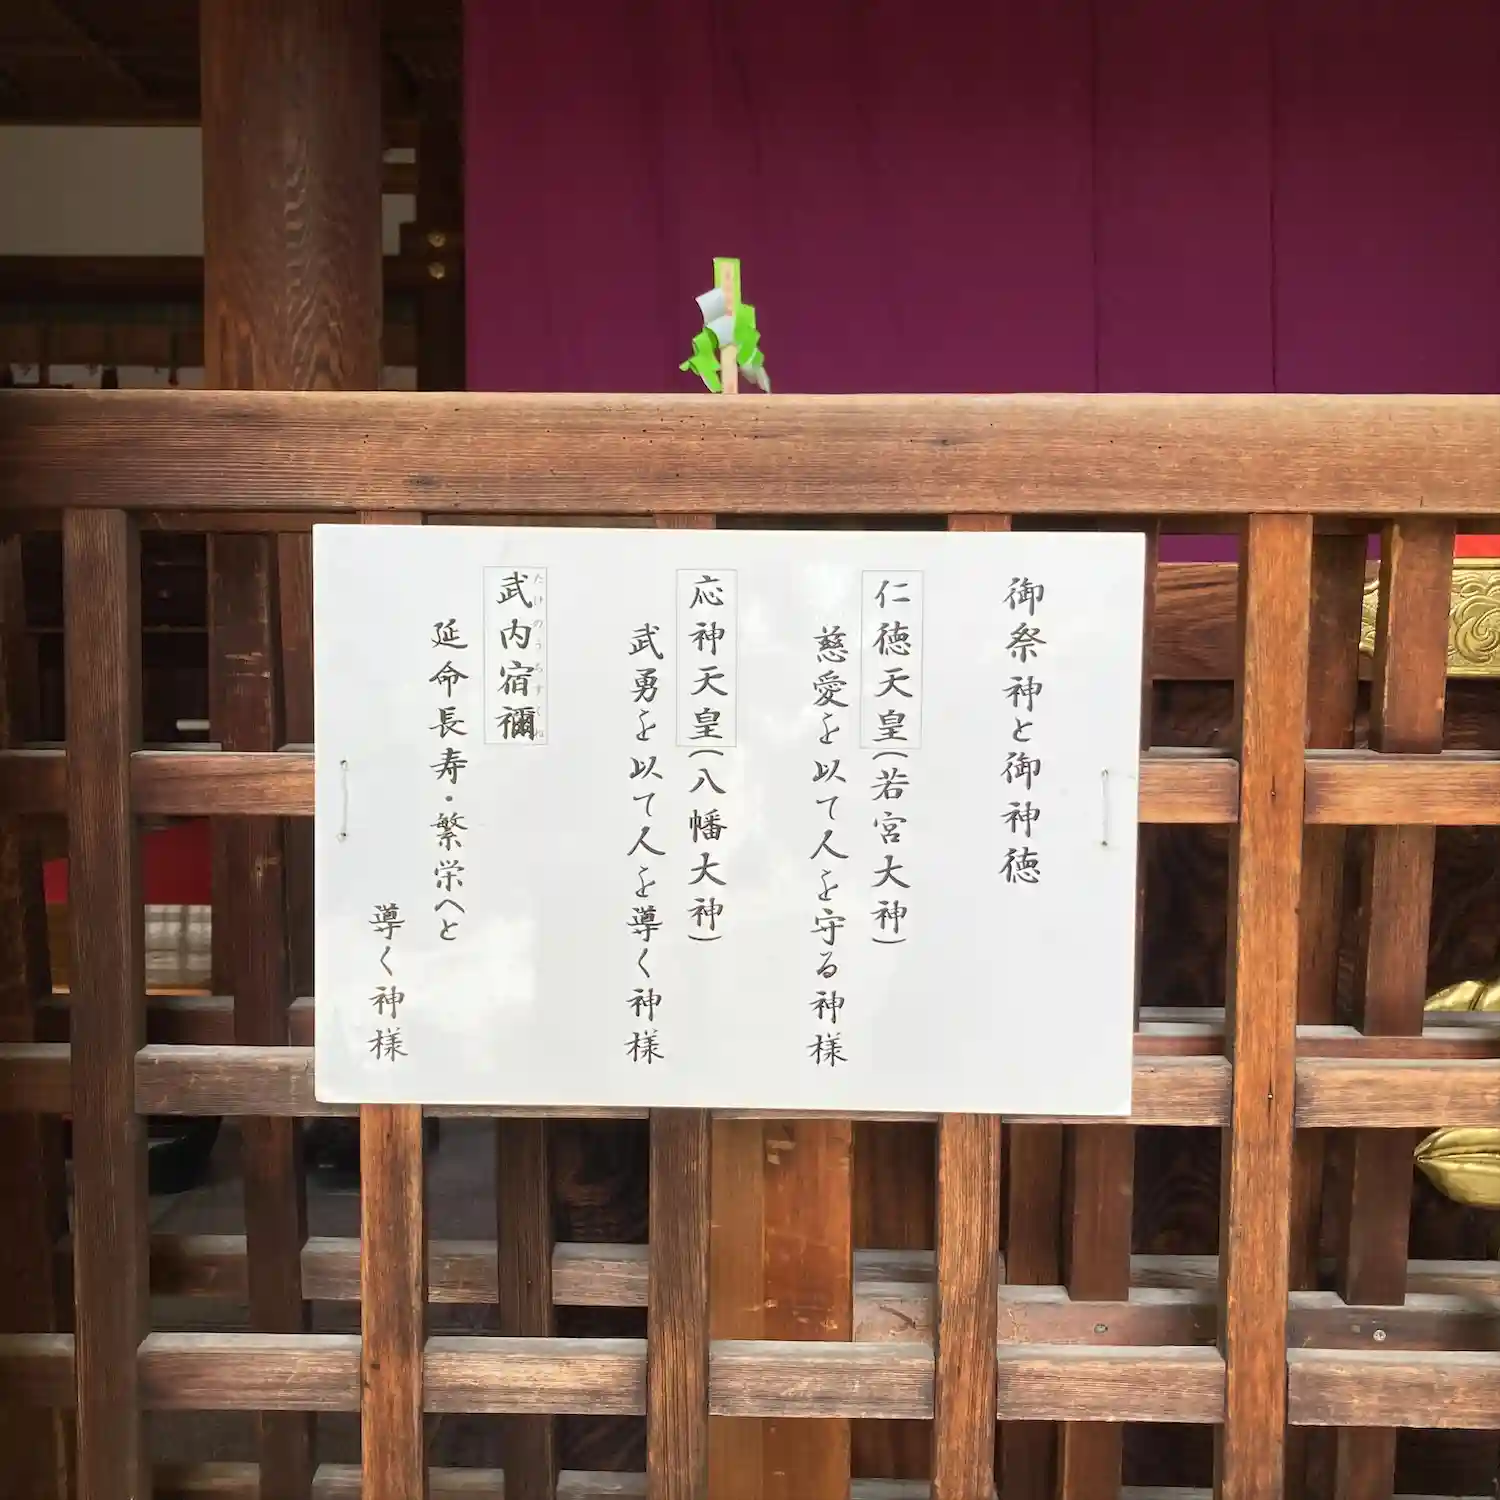 御祭神と御神徳
仁徳天皇(若宮大神)
慈愛を以て人を守る神様
応神天皇(八幡大神)
武勇を以て人を導く神様
武内宿禰
たけのうちすくね
延命長寿・繁栄へと
導く神様